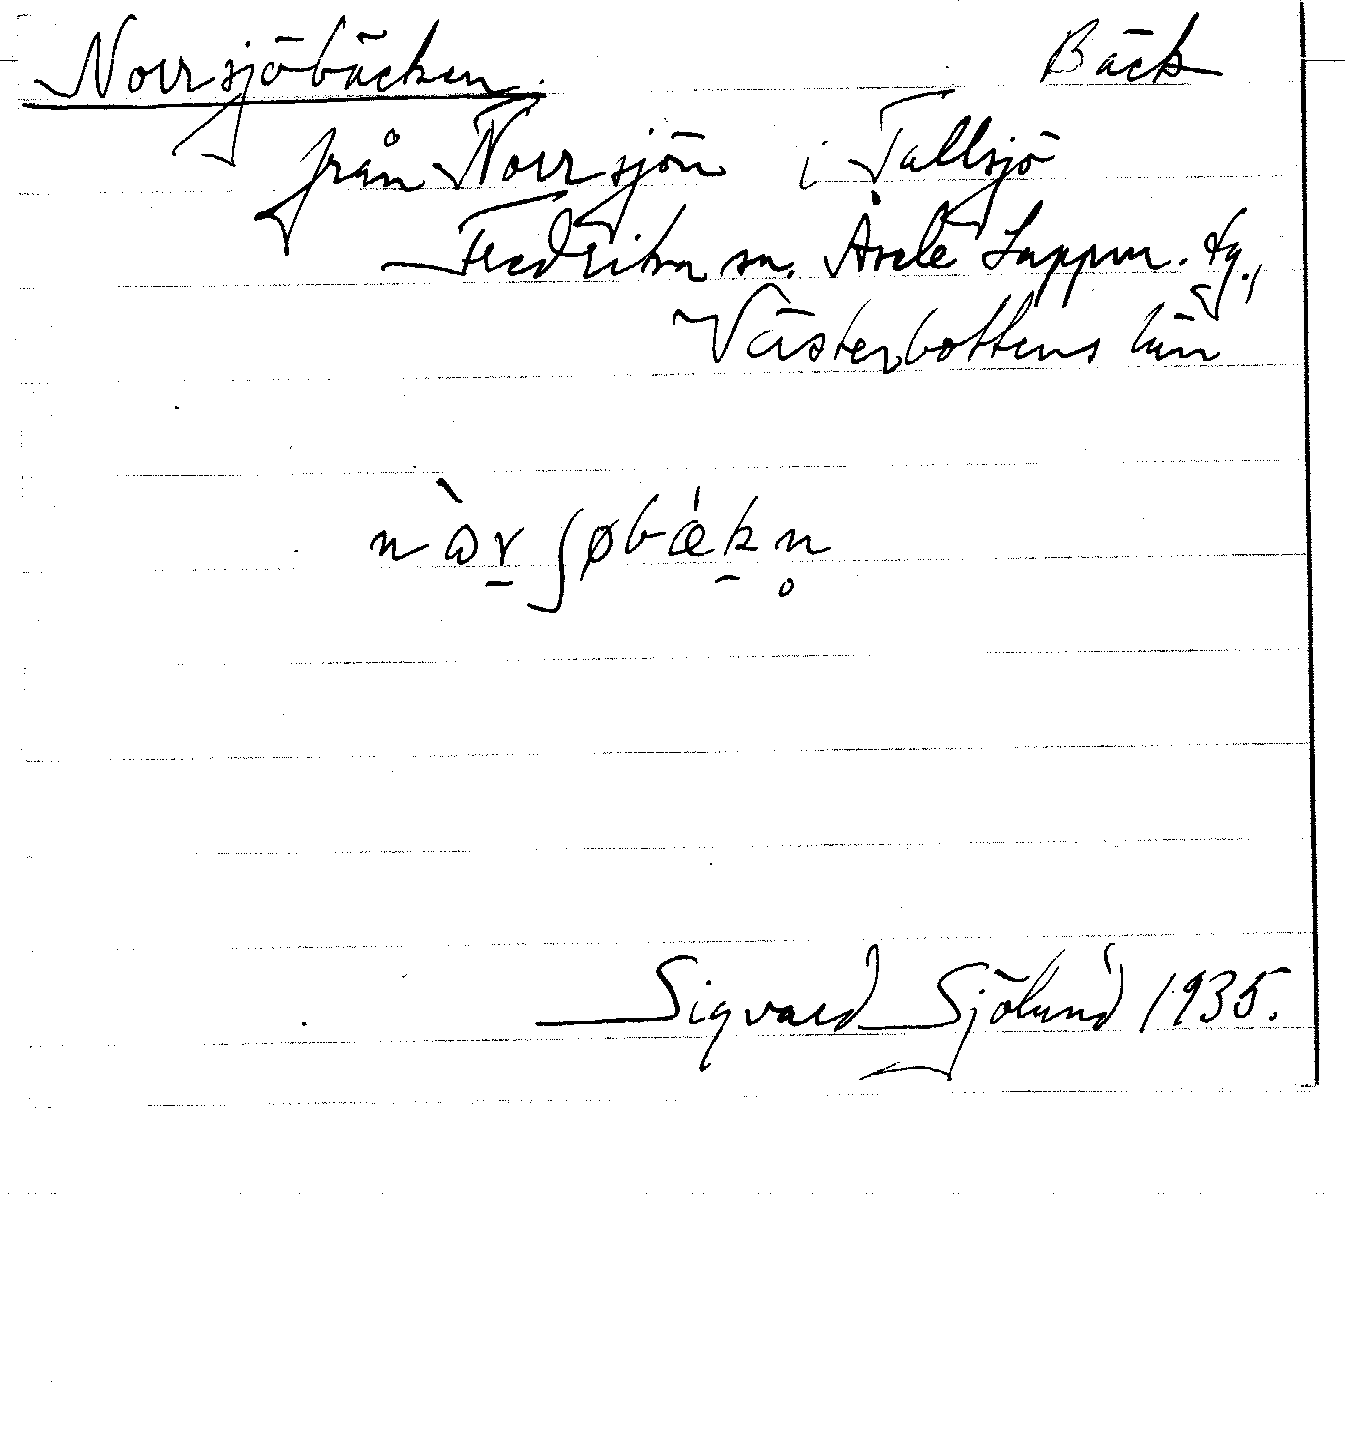 Norrsjöbäcken. Bäck
från Norrsjön i Tallsjö
Fredrika sn. Åsele Lappm. tg.,
Västerbottens län
nὼr̠ʃøbǽk̠n̥
Sigvard Sjölund 1935.